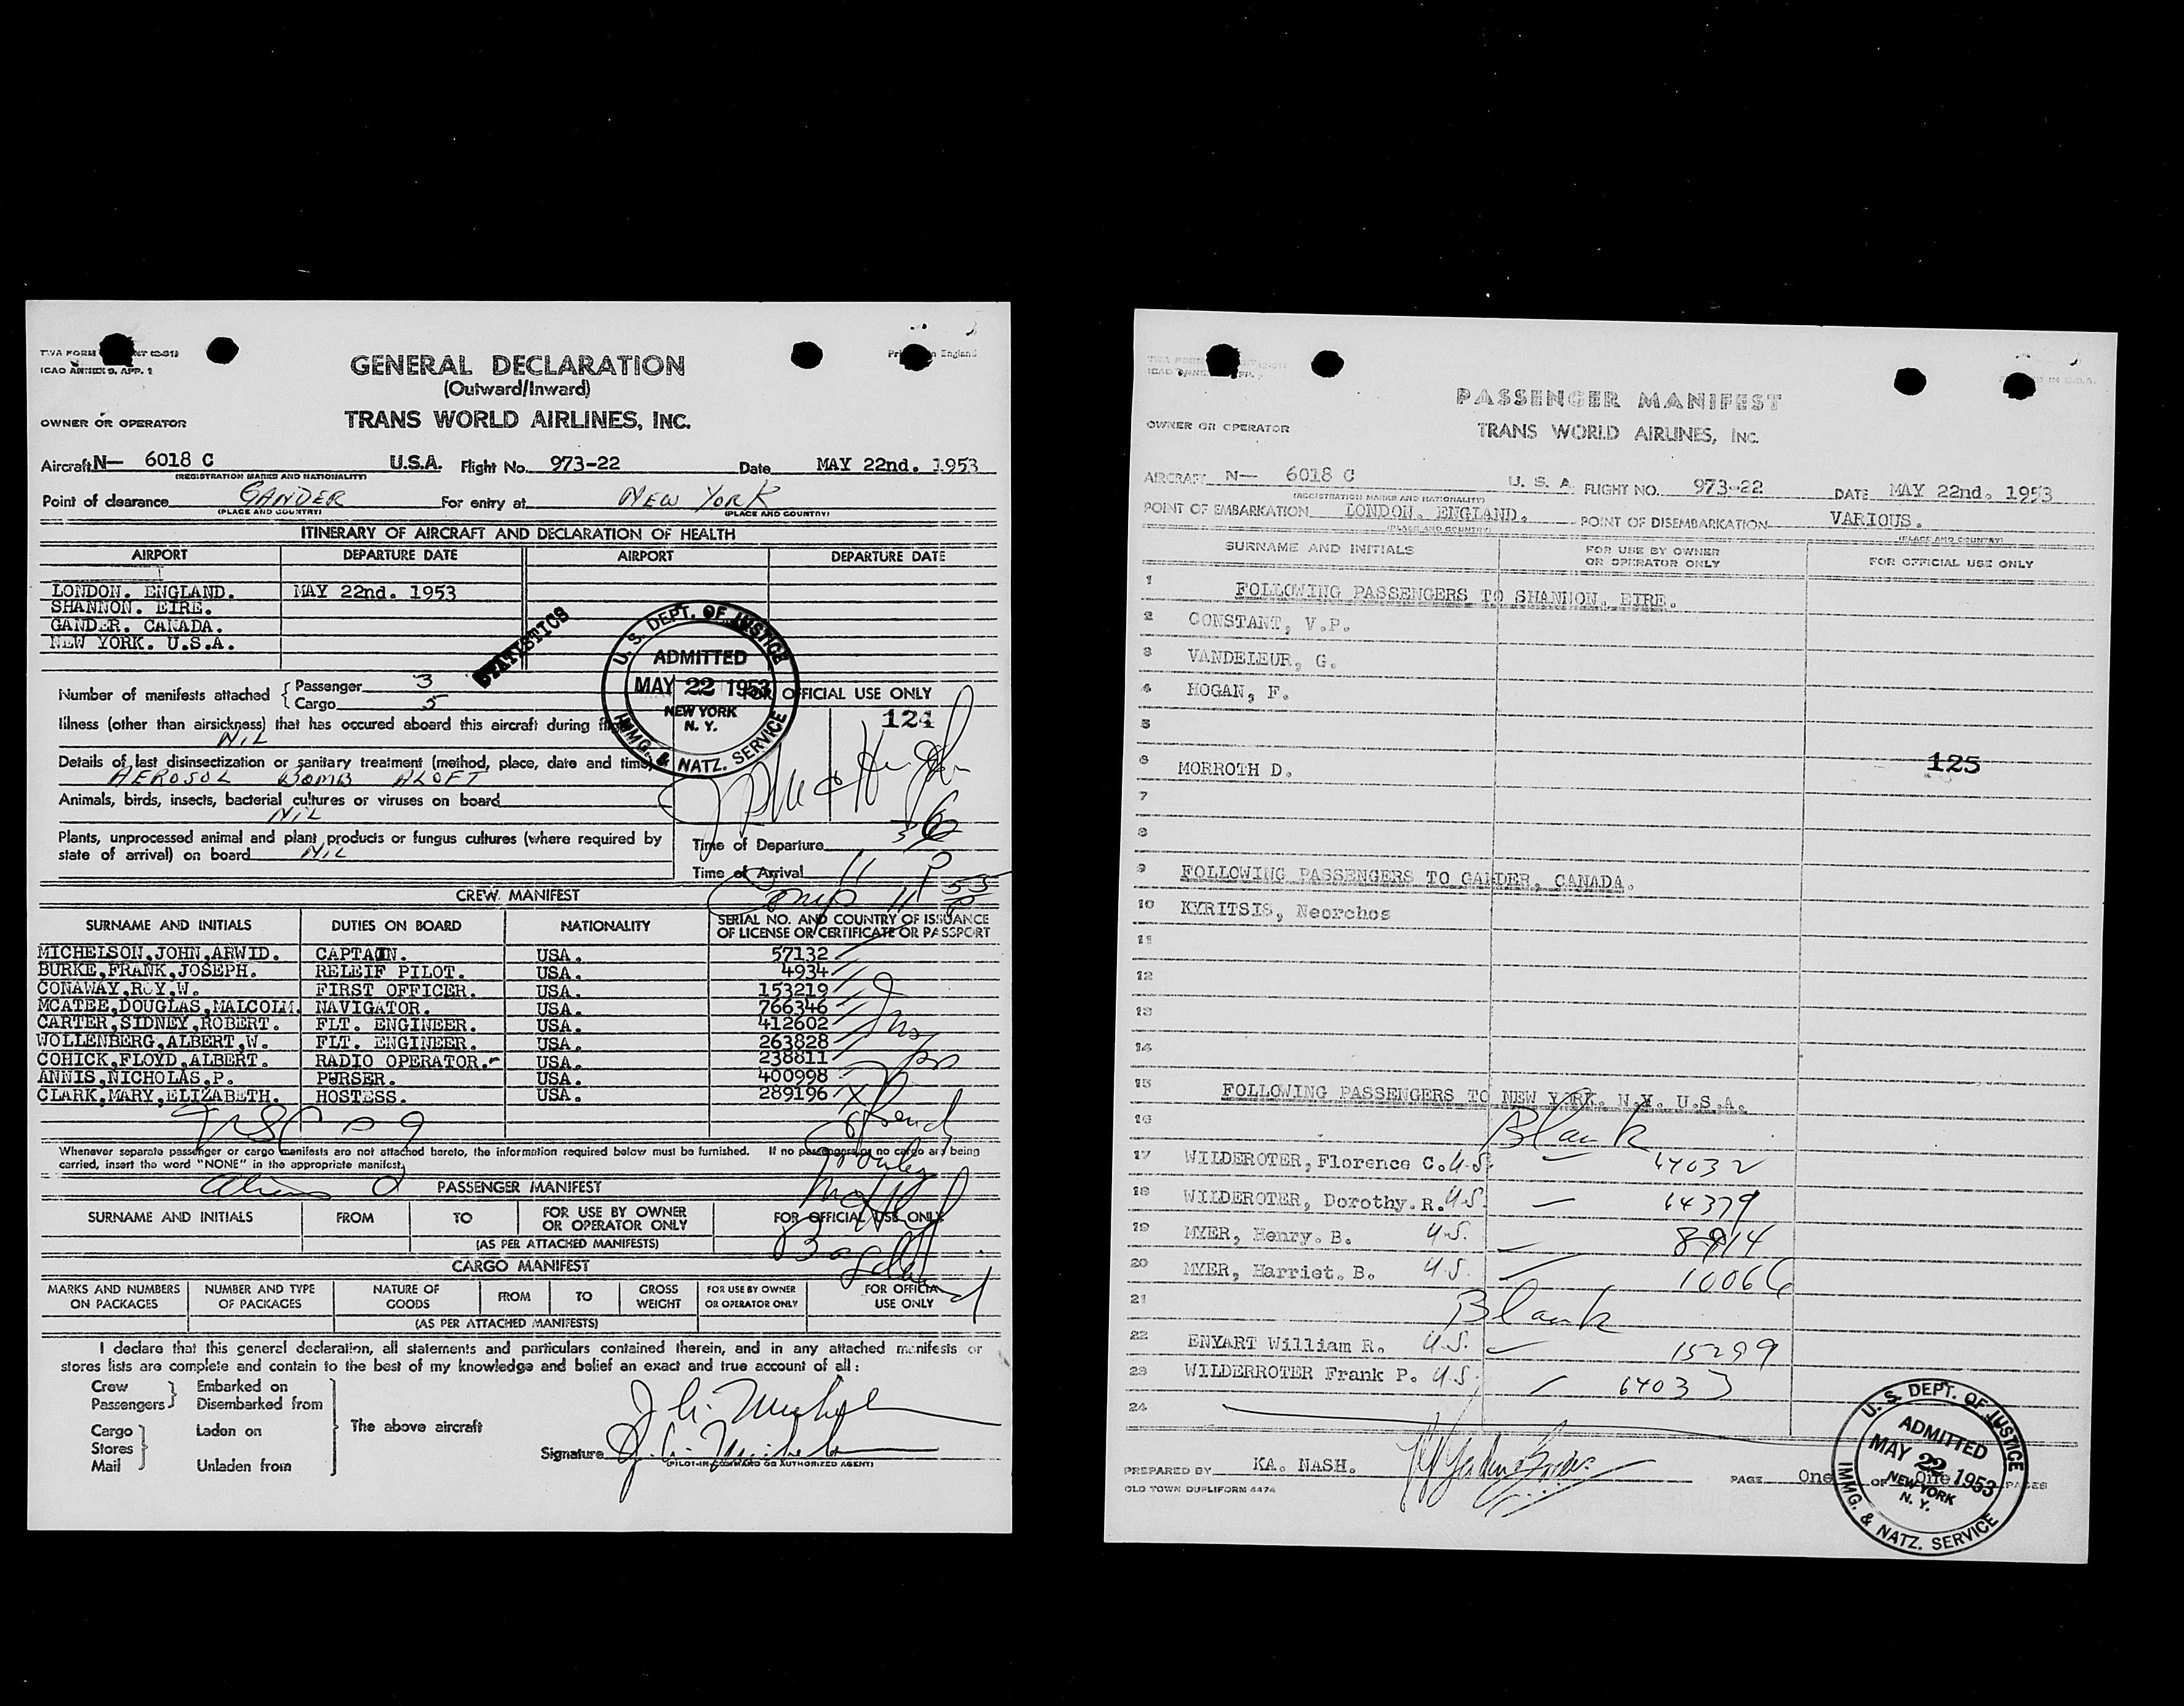 TWA FORM
ICAO ANNEX 9. APP. 1
GENERAL DECLARATION
(Outward/Inward)
TRANS WORLD AIRLINES, INC.
OWNER OR OPERATOR
Aircraft N— 6018 C U.S.A. Flight No. 973-22 Date MAY 22nd. 1953
(REGISTRATION MARKS AND NATIONALITY)
Point of clearance GANDER For entry at NEW YORK
(PLACE AND COUNTRY) (PLACE AND COUNTRY)
ITINERARY OF AIRCRAFT AND DECLARATION OF HEALTH
AIRPORT DEPARTURE DATE AIRPORT DEPARTURE DATE
LONDON. ENGLAND. MAY 22nd. 1953
SHANNON. EIRE.
GANDER. CANADA.
NEW YORK. U.S.A.
STATISTICS
U. S. DEPT. OF JUSTICE
ADMITTED
MAY 22 1953
NEW YORK
N. Y.
IMMG. & NATZ. SERVICE
Number of manifests attached { Passenger 3
Cargo 5
FOR OFFICIAL USE ONLY
124
Illness (other than airsickness) that has occured aboard this aircraft during
NIL
Details of last disinsectization or sanitary treatment (method, place, date and time)
AEROSOL BOMB ALOFT
Animals, birds, insects, bacterial cultures or viruses on board
NIL
Plants, unprocessed animal and plant products or fungus cultures (where required by
state of arrival) on board NIL
Time of Departure
Time of Arrival
CREW MANIFEST
SURNAME AND INITIALS DUTIES ON BOARD NATIONALITY SERIAL NO. AND COUNTRY OF ISSUANCE
OF LICENSE OR CERTIFICATE OR PASSPORT
MICHELSON,JOHN,ARWID. CAPTAIN. USA. 57132
BURKE,FRANK,JOSEPH. RELEIF PILOT. USA. 4934
CONAWAY,ROY,W. FIRST OFFICER. USA. 153219
MCATEE,DOUGLAS,MALCOLM. NAVIGATOR. USA. 766346
CARTER,SIDNEY,ROBERT. FLT. ENGINEER. USA. 412602
WOLLENBERG,ALBERT,W. FLT. ENGINEER. USA. 263828
COHICK,FLOYD,ALBERT. RADIO OPERATOR.- USA. 238811
ANNIS,NICHOLAS,P. PURSER. USA. 400998
CLARK,MARY,ELIZABETH. HOSTESS. USA. 289196
Whenever separate passenger or cargo manifests are not attached hereto, the information required below must be furnished. If no passengers or no cargo are being
carried, insert the word "NONE" in the appropriate manifest.
PASSENGER MANIFEST
SURNAME AND INITIALS FROM TO FOR USE BY OWNER
OR OPERATOR ONLY FOR OFFICIAL USE ONLY
(AS PER ATTACHED MANIFESTS)
CARGO MANIFEST
MARKS AND NUMBERS
ON PACKAGES NUMBER AND TYPE
OF PACKAGES NATURE OF
GOODS FROM TO GROSS
WEIGHT FOR USE BY OWNER
OR OPERATOR ONLY FOR OFFICIAL
USE ONLY
(AS PER ATTACHED MANIFESTS)
I declare that this general declaration, all statements and particulars contained therein, and in any attached manifests or
stores lists are complete and contain to the best of my knowledge and belief an exact and true account of all :
Crew Embarked on
Passengers Disembarked from
The above aircraft
Cargo Laden on
Stores
Mail Unladen from
Signature
(PILOT-IN-COMMAND OR AUTHORIZED AGENT)
PASSENGER MANIFEST
TRANS WORLD AIRLINES, INC.
OWNER OR OPERATOR
AIRCRAFT N— 6018 C U. S. A. FLIGHT NO. 973-22 DATE MAY 22nd. 1953
(REGISTRATION MARKS AND NATIONALITY)
POINT OF EMBARKATION LONDON. ENGLAND. POINT OF DISEMBARKATION VARIOUS.
(PLACE AND COUNTRY) (PLACE AND COUNTRY)
SURNAME AND INITIALS FOR USE BY OWNER
OR OPERATOR ONLY FOR OFFICIAL USE ONLY
1 FOLLOWING PASSENGERS TO SHANNON, EIRE.
2 CONSTANT, V.P.
3 VANDELEUR, G.
4 HOGAN, F.
5
6 MORROTH D. 125
7
8
9 FOLLOWING PASSENGERS TO GANDER, CANADA.
10 KYRITSIS, Neorchos
11
12
13
14
15 FOLLOWING PASSENGERS TO NEW YORK. N.Y. U.S.A.
16 Blank
17 WILDEROTER, Florence C. U.S. 64032
18 WILDEROTER, Dorothy. R. U.S. 64379
19 MYER, Henry. B. U.S. 8914
20 MYER, Harriet. B. U.S. 10066
21 Blank
22 ENYART William R. U.S. 15299
23 WILDERROTER Frank P. U.S. 64033
24
PREPARED BY KA. NASH. PAGE One OF One PAGES
OLD TOWN DUPLIFORM 4474
U. S. DEPT. OF JUSTICE
ADMITTED
MAY 22 1953
NEW YORK
N. Y.
IMMG. & NATZ. SERVICE